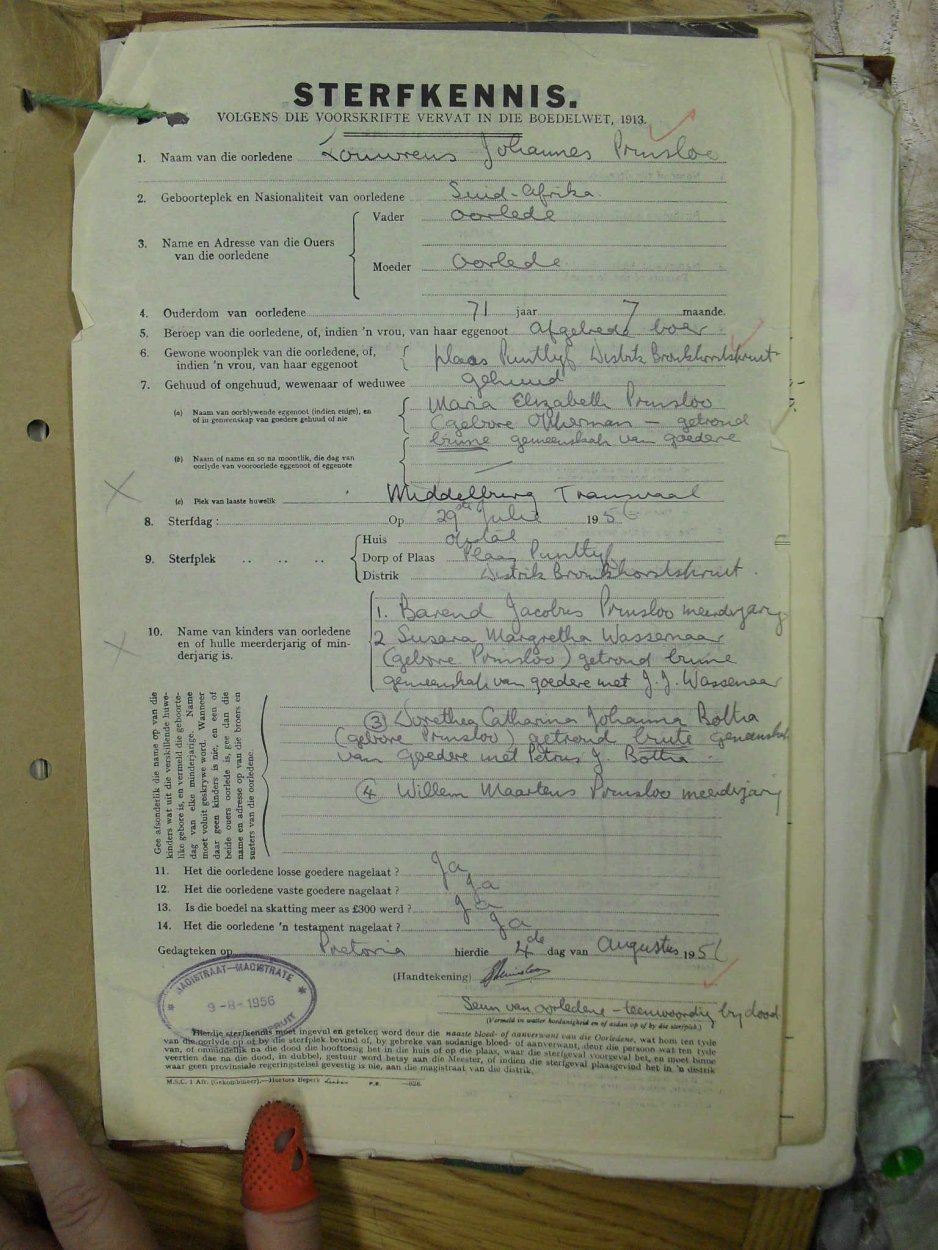 STERFKENNIS.
VOLGENS DIE VOORSKRIFTE VERVAT IN DIE BOEDELWET, 1913.
1. Naam van die oorledene Louwrens Johannes Prinsloo
2. Geboorteplek en Nasionaliteit van oorledene Suid-Afrika
3. Name en Adresse van die Ouers van die oorledene
Vader oorlede
Moeder oorlede
4. Ouderdom van oorledene 71 jaar 7 maande.
5. Beroep van die oorledene, of, indien 'n vrou, van haar eggenoot afgetrede boer
6. Gewone woonplek van die oorledene, of, indien 'n vrou, van haar eggenoot
plaas Puntlyf Distrik Bronkhorstspruit
7. Gehuud of ongehuud, wewenaar of weduwee gehuud
(a) Naam van oorblywende eggenoot (indien enige), en
of in gemeenskap van goedere gehuud of nie
Maria Elizabeth Prinsloo
(gebore – getroud
binne gemeenskap van goedere
(b) Naam of name en so na moontlik, die dag van
oorlyde van vooroorlede eggenoot of eggenote
(c) Plek van laaste huwelik Middelburg Transvaal
8. Sterfdag : Op 29ste Julie 1956
9. Sterfplek .. .. ..
Huis
Dorp of Plaas Plaas Puntlyf
Distrik Distrik Bronkhorstspruit.
10. Name van kinders van oorledene
en of hulle meerderjarig of min-
derjarig is.
1. Barend Jacobus Prinsloo meerderjarig
2 Susara Margretha Wassenaar
(gebore Prinsloo) getroud binne
gemeenskap van goedere met J. J. Wassenaar
Gee afsonderlik die name op van die
kinders wat uit die verskillende huwe-
like gebore is, en vermeld die geboorte-
dag van elke minderjarige. Name
moet voluit geskrywe word. Wanneer
daar geen kinders is nie, en een of
beide ouers oorlede is, gee dan die
name en adresse op van die broers en
susters van die oorledene.
3 Dorethea Catharina Johanna Botha
(gebore Prinsloo) getroud buite gemeenskap
van goedere met Petrus J. Botha.
4. Willem Maartens Prinsloo meerderjarig
11. Het die oorledene losse goedere nagelaat ? Ja
12. Het die oorledene vaste goedere nagelaat ? Ja
13. Is die boedel na skatting meer as £300 werd ? Ja
14. Het die oorledene 'n testament nagelaat ? Ja
Gedagteken op Pretoria hierdie 4de dag van Augustus 1956
(Handtekening) Prinsloo
MAGISTRAAT—MAGISTRATE
9-8-1956
Seun van oorledene - teenwoordig by dood
(Vermeld in watter hoedanigheid en of aldan op of by die sterfplek.)
Hierdie sterfkennis moet ingevul en geteken word deur die naaste bloed- of aanverwant van die Oorledene, wat hom ten tyde
van die oorlyde op of by die sterfplek bevind of, by gebreke van sodanige bloed- of aanverwant, deur die persoon wat ten tyde
van, of onmiddellik na die dood die hooftoesig het in die huis of op die plaas, waar die sterfgeval voorgeval het, en moet binne
veertien dae na die dood, in dubbel, gestuur word hetsy aan die Meester, of indien die sterfgeval plaasgevind het in 'n distrik
waar geen provinsiale regeringstelsel gevestig is nie, aan die magistraat van die distrik.
M.S.C. 1 Afr. (Gekombineer).—Hortors Beperk